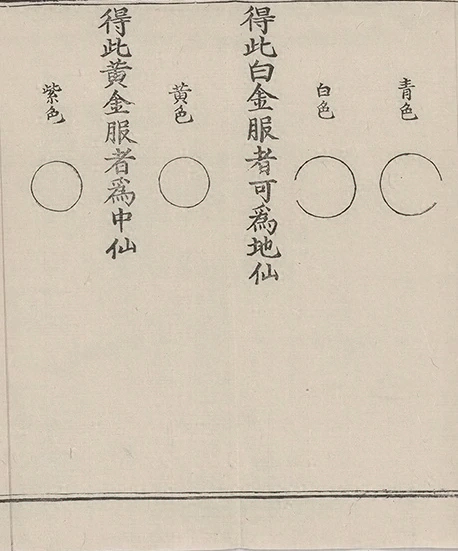 青色
白色
得此白金服者可爲地仙
黄色
得此黃金服者爲中仙
紫色